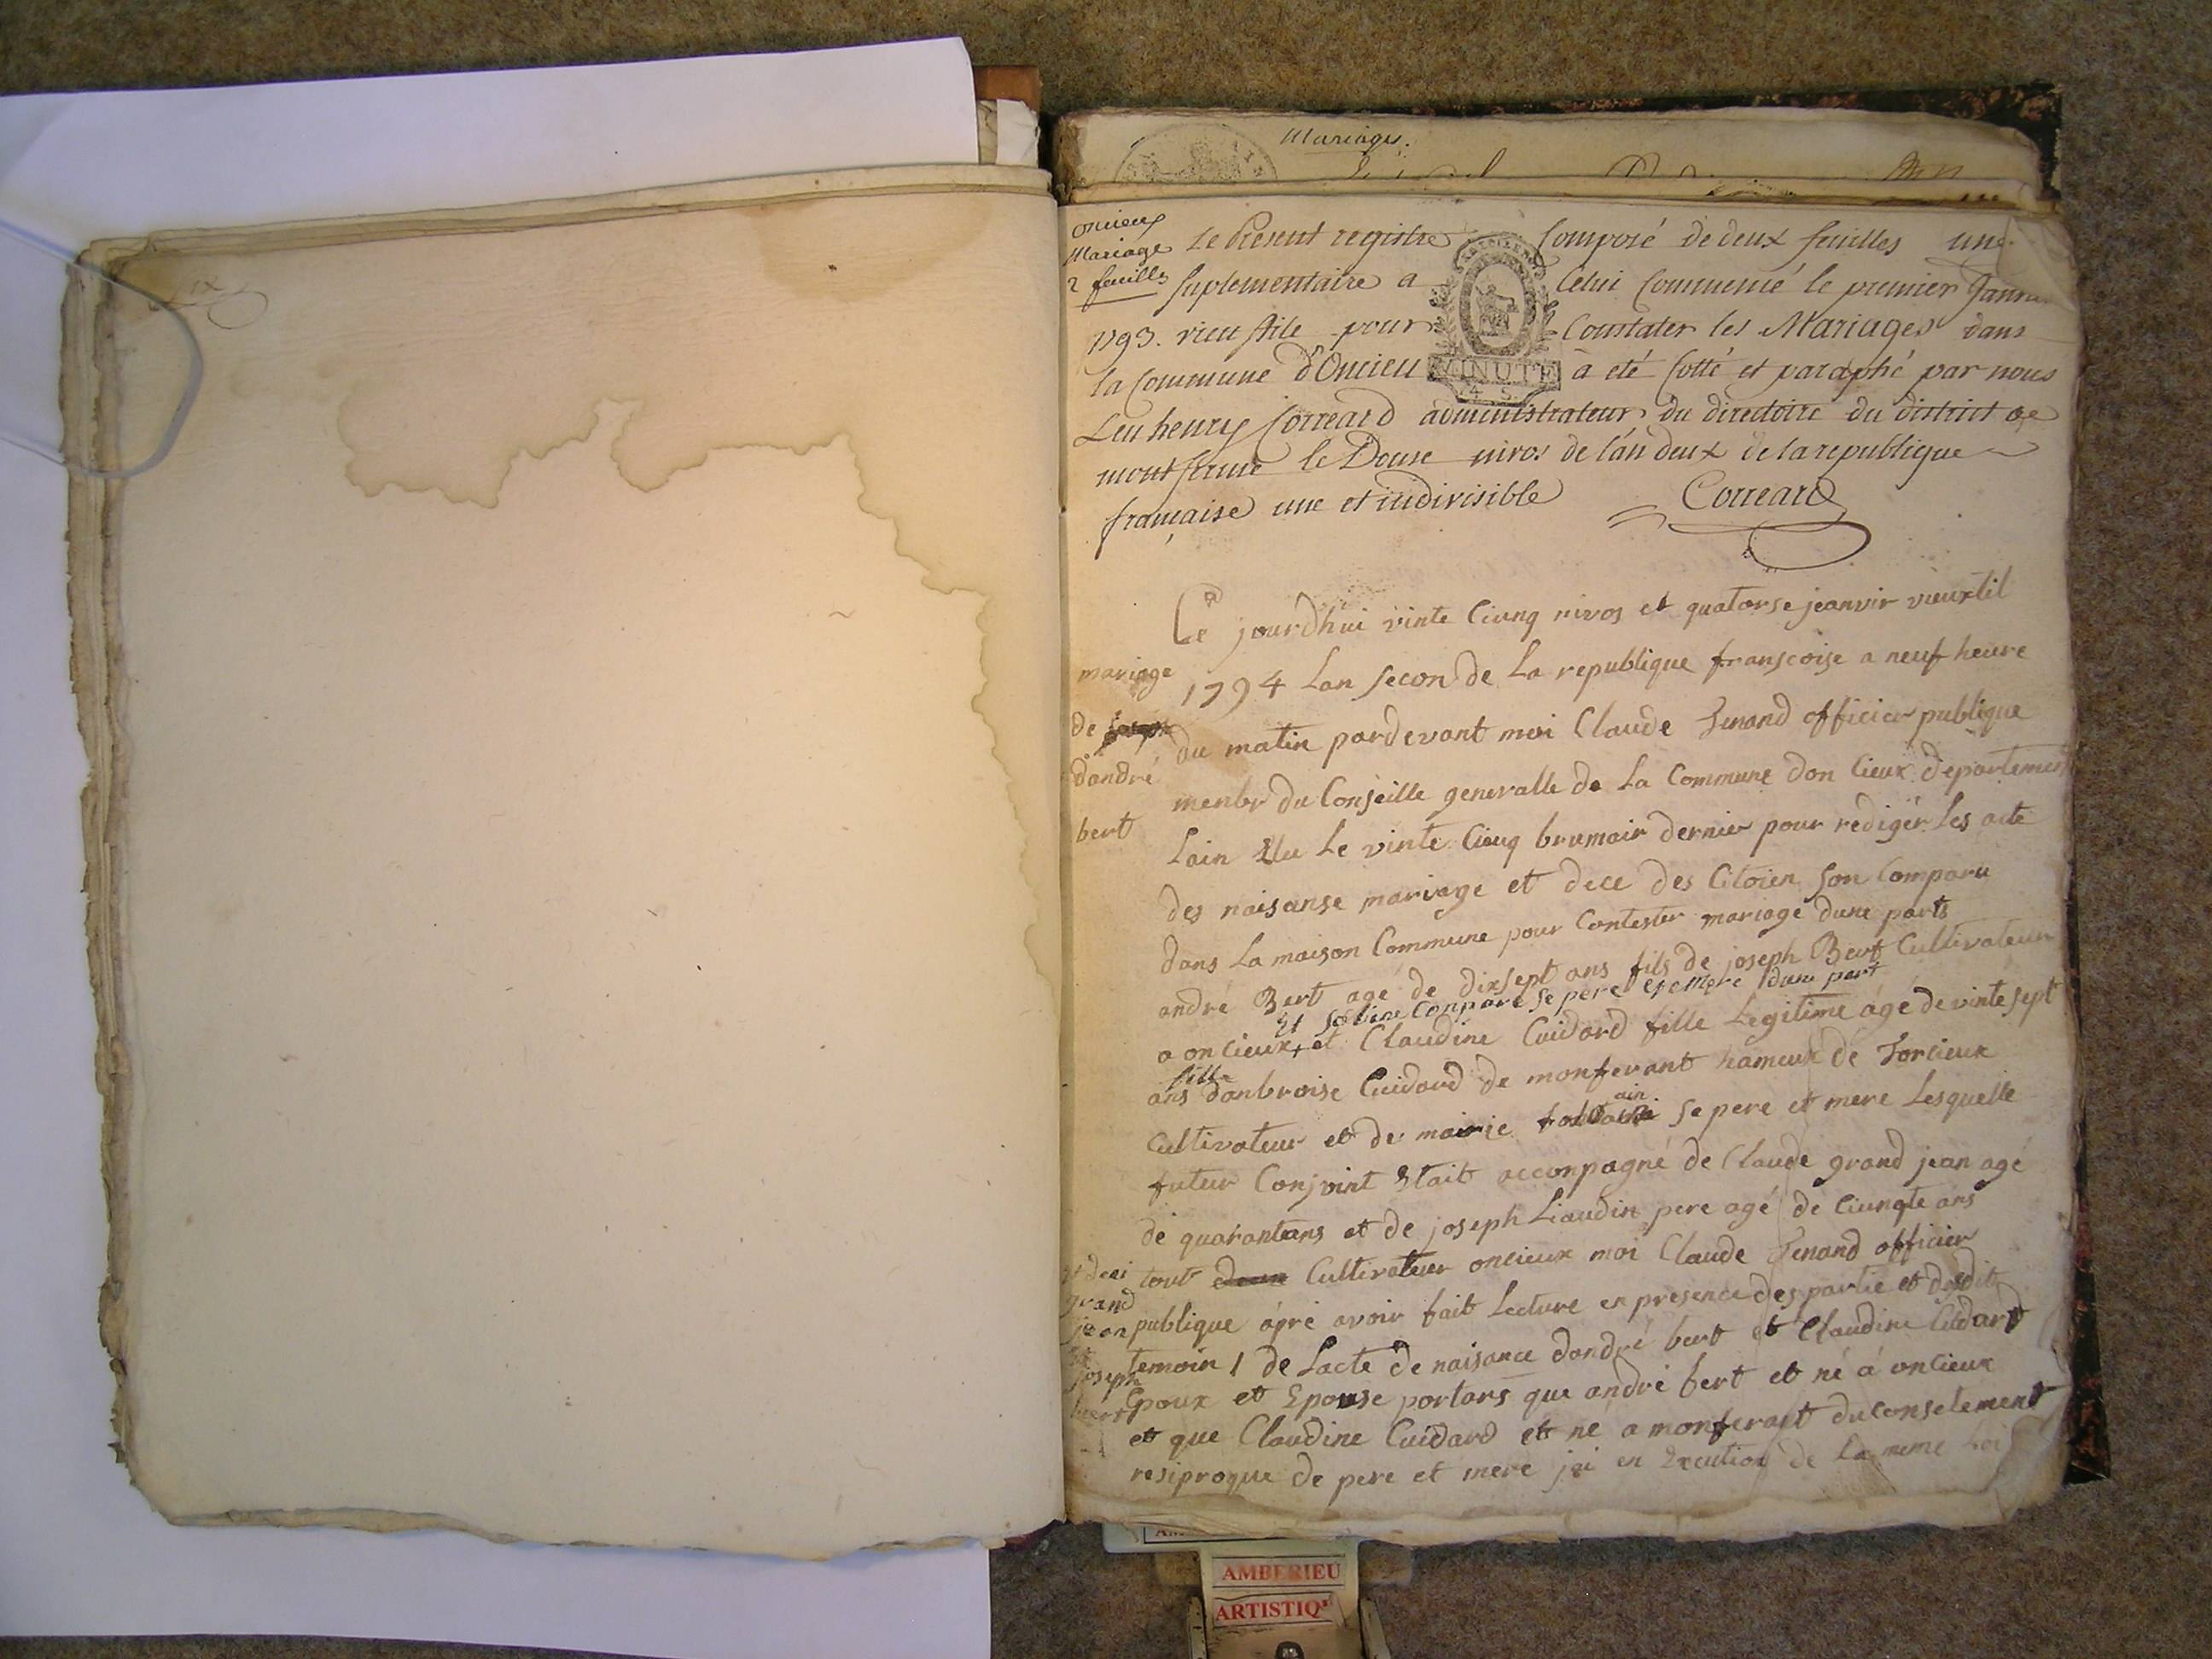 Mariages.
oncieux
Mariage
2 feuilles
Le Present registre Composé de deux feuilles une
suplementaire a Celui Commencé le premier Janv
1793. vieu stile pour Constater les Mariages dans
la Commune d'Oncieu à eté Cotté et paraphé par nous
Leu henry Correard administrateur du directoire du district de
montferme le Douse nivos de l'an deux de la republique
française une et indivisible Correard
MINUTE
4 S
Ce jourdhui vinte Ciunq nivos et quatorse jeanvir vieuxtil
mariage
1794 Lan second de La republique fransçoise a neuf heure
de
du matin pardevant moi Claude Junand officier publique
dandré
menbr du Conseille generalle de La Commune don Cieux departement
bert
Lain Elu Le vinte Cieuq brumair dernier pour redigér Les acte
des naisanse mariage et dece des Citoien son Comparu
dans La maison Commune pour Contester mariage dune parts
andré Bert agé de dixsept ans fils de joseph Bert Cultivateur
Et Conparé se pere et mere dune part
a on Cieux, et Claudine Cuidard fille Legitime ágé de vinte sept
fille
ans danbroise Cuidard de monferant hameux dé Torcieux
Cultivateur et de mairie se pere et mere Lesquelle
futeur Conjoint Etait acconpagné de Claude grand jean agé
dé quarantans et de joseph Liaudin pere agé de Ciunqte ans
tout Cultivateur oncieux moi Claude Junand officier
grand
jean
publique ápré avoir fait Lecture en presence des partie et desdit
temoin 1 de Lacte de naisance dandré bert et Claudine Cuidard
joseph
Epoux et Epouse portans que andré bert et né á oncieux
et que Claudine Cuidard et né a monferant du Conselement
resiproque de pere et mere jai en Execution de La meme Loi
AMBERIEU
ARTISTIQ